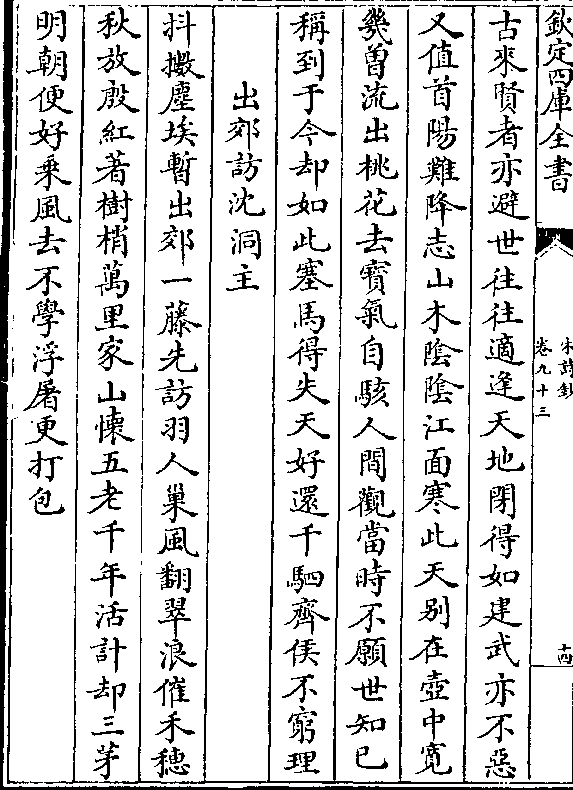 欽定四庫全書
宋詩鈔
卷九十三
十四
古來賢者亦避世往往適逢天地閉得如建武亦不惡
又值首陽難降志山木陰陰江面寒此天别在壺中寛
幾曽流出桃花去寳氣自駭人間觀當時不願世知已
稱到于今却如此塞馬得失天好還千駟齊侯不窮理
出郊訪沈洞主
抖擻塵埃暫出郊一藤先訪羽人巢風翻翠浪催禾穗
秋放殷紅著樹梢萬里家山懐五老千年活計却三茅
明朝便好乗風去不學浮屠更打包